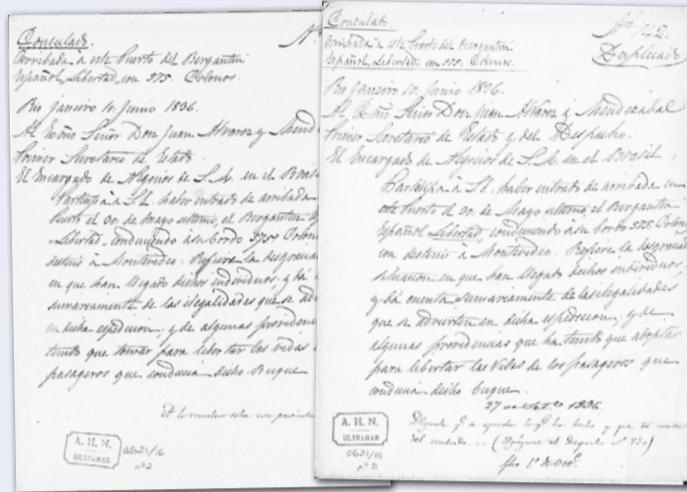 Consulado.
Arribada a este Puerto del Bergantin
español Libertad, con 375 Colonos.
Rio Janeiro 10 Junio 1836.
Al Exmo Señor Don Juan Alvarez y Mend
Primer Secretario de Estado
El Encargado de Negocios de S.M. en el Brasil
Participa a S.E. haber entrado de arribada
Puerto el 30 de Mayo ultimo, el Bergantin
Libertad, conduciendo a su bordo 375 Colonos
destino á Montevideo: Refiere la desgraciada
en que han llegado dichos individuos, y dá
sumariamente de las ilegalidades que se ad
en dicha espedicion, y de algunas providencias
tenido que tomar para libertar las vidas
pasageros que conducia dicho Buque
A. H. N.
ULTRAMAR
Nº 142
Duplicado
Consulado.
Arribada a este Puerto del Bergantin
español Libertad con 375 Colonos.
Rio Janeiro 10 Junio 1836.
Al Exmo Señor Don Juan Alvarez i Mendizabal
Primer Secretario de Estado y del Despacho.
El Encargado de Negocios de S.M. en el Brasil:
Participa a S.E. haber entrado de arribada en
este Puerto el 30 de Mayo ultimo, el Bergantin
español Libertad, conduciendo a su bordo 375 Colonos
con destino á Montevideo. Refiere la desgraciada
situacion en que han llegado dichos individuos,
y dá cuenta sumariamente de las ilegalidades
que se advierten en dicha espedicion, y de
algunas providencias que ha tenido que adoptar
para libertar las vidas de los pasageros que
conducia dicho buque.
27 1836.
A. H. N.
ULTRAMAR